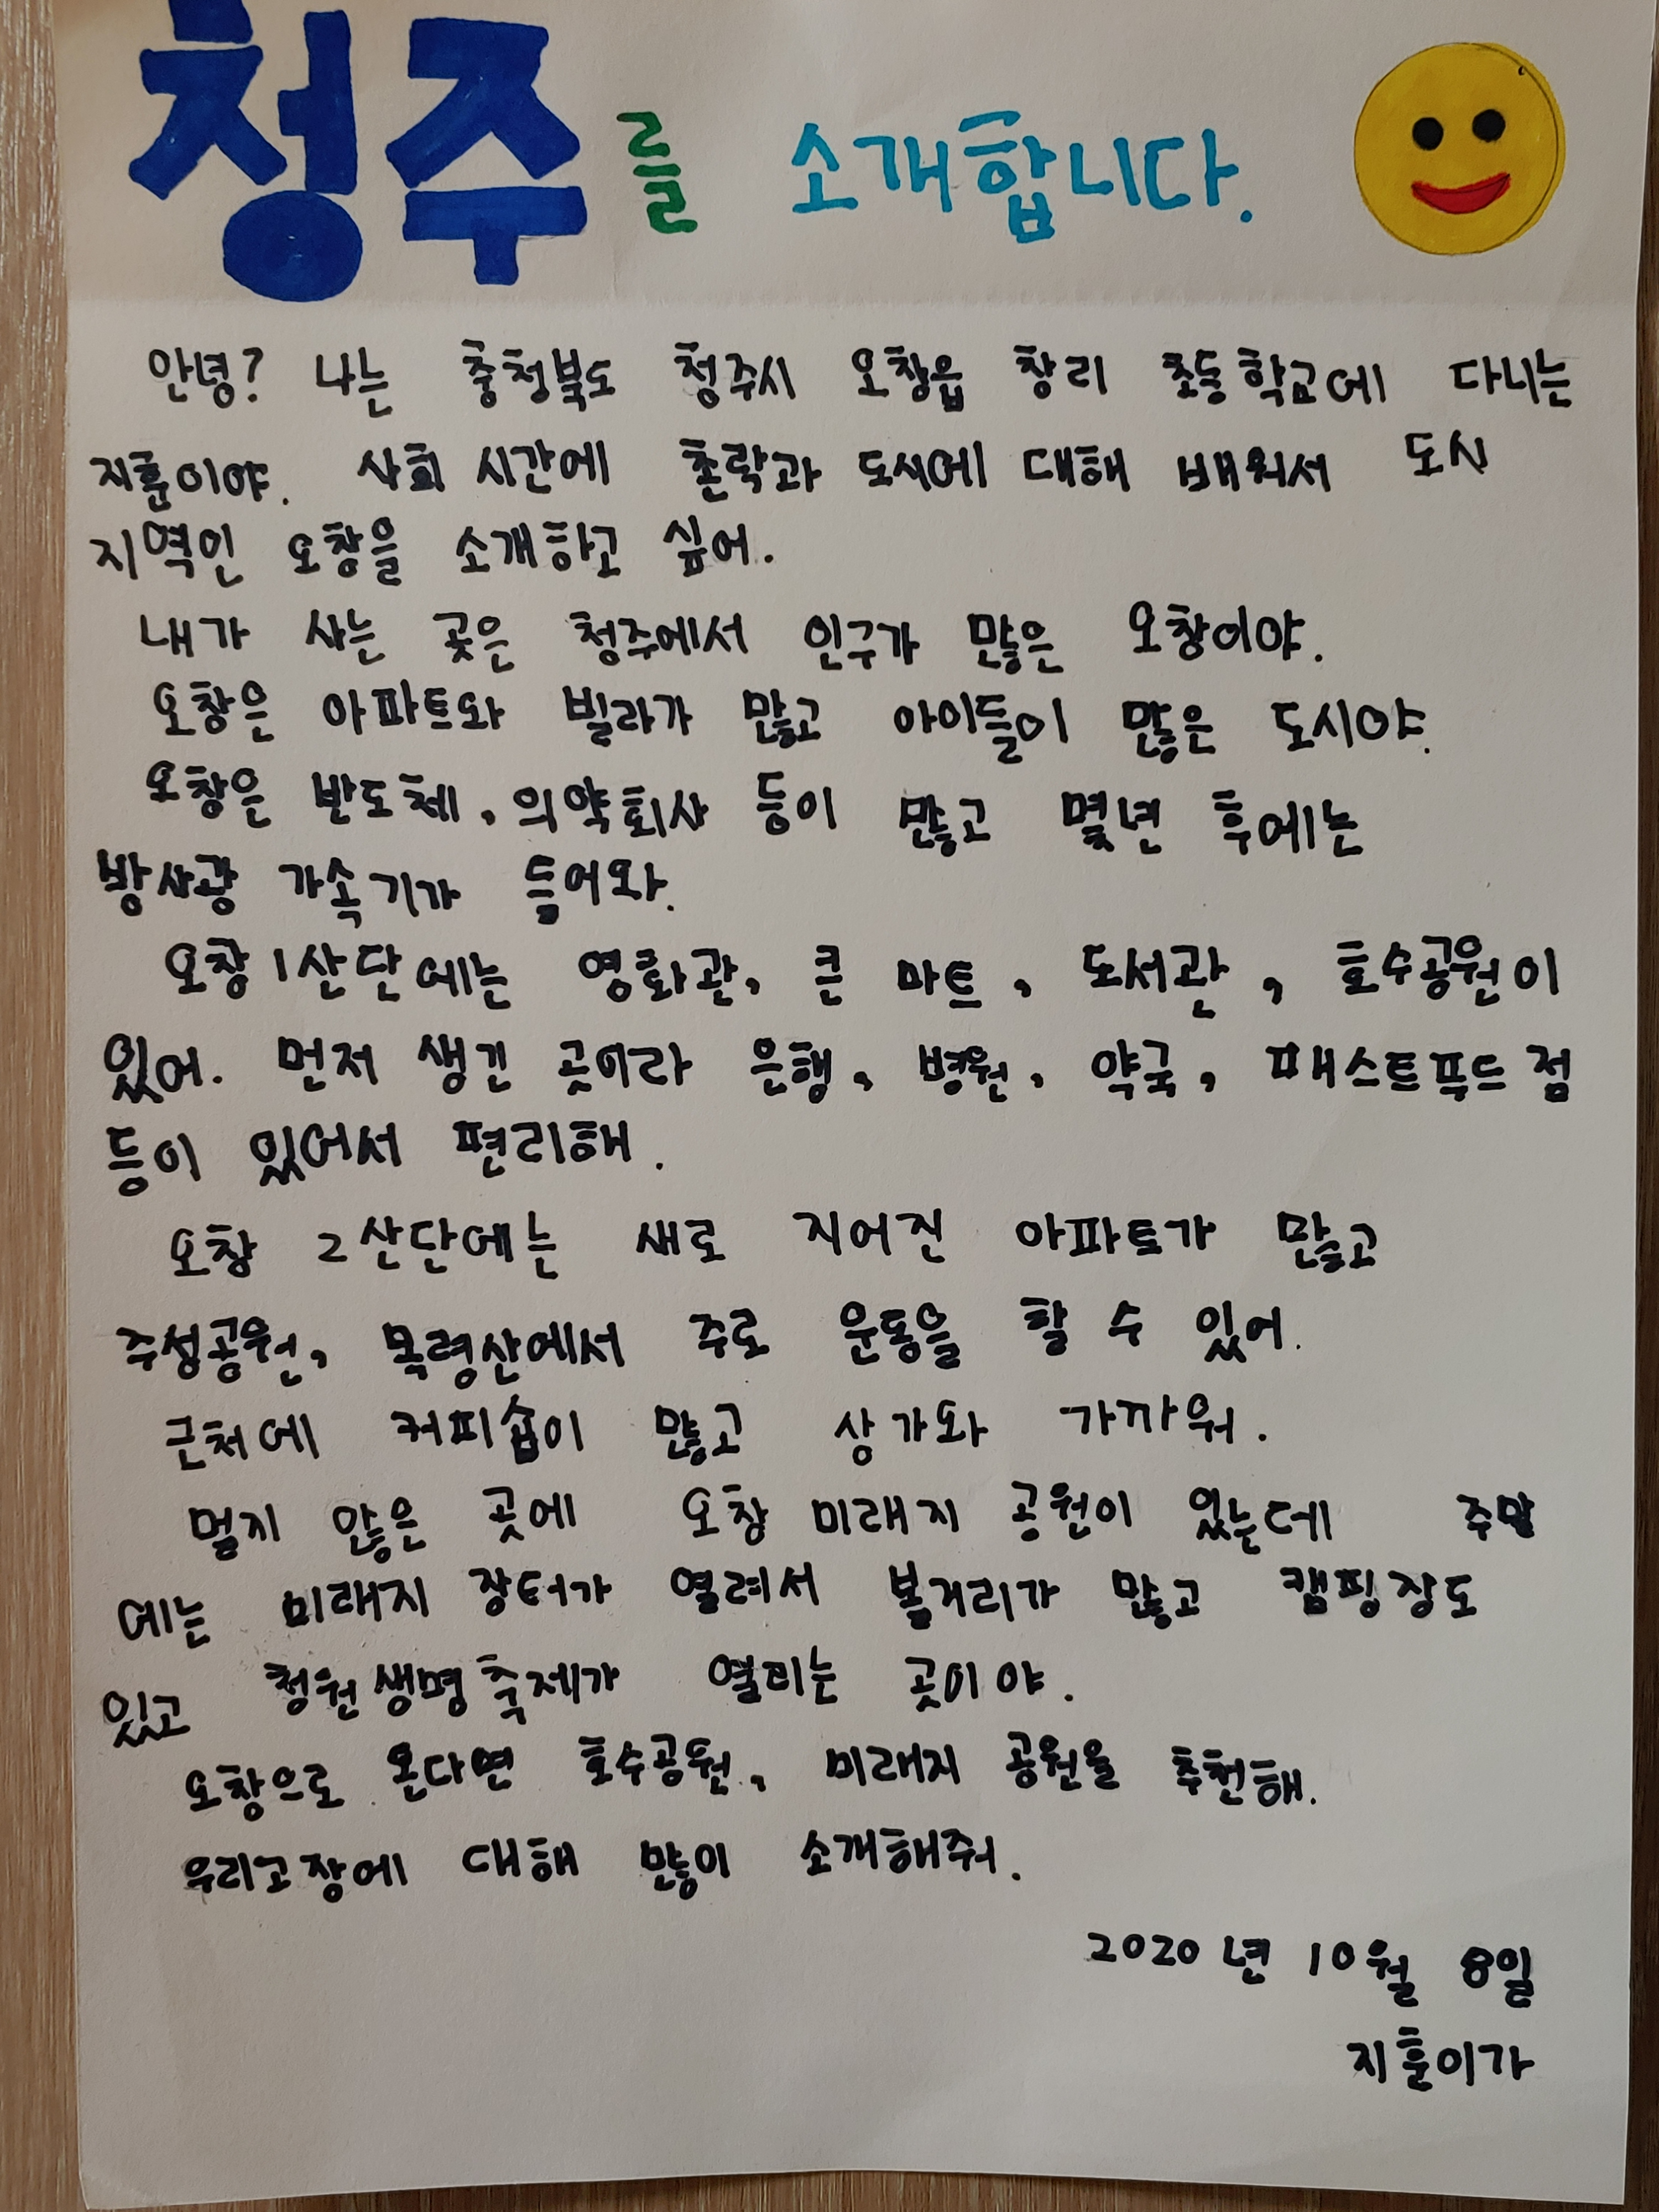 청주를 소개합니다.
안녕? 나는 충청북도 청주시 오창읍 창리 초등학교에 다니는
지훈이야. 사회 시간에 촌락과 도시에 대해 배워서 도시
지역인 오창을 소개하고 싶어.
내가 사는 곳은 청주에서 인구가 많은 오창이야.
오창은 아파트와 빌라가 많고 아이들이 많은 도시야.
오창은 반도체, 의약회사 등이 많고 몇년 후에는
방사광 가속기가 들어와.
오창 1산단에는 영화관, 큰 마트, 도서관, 호수공원이
있어. 먼저 생긴 곳이라 은행, 병원, 약국, 패스트푸드점
등이 있어서 편리해.
오창 2산단에는 새로 지어진 아파트가 많고
주성공원, 목령산에서 주로 운동을 할 수 있어.
근처에 커피숍이 많고 상가와 가까워.
멀지 않은 곳에 오창 미래지 공원이 있는데 주말
에는 미래지 장터가 열려서 볼거리가 많고 캠핑장도
있고 청원생명축제가 열리는 곳이야.
오창으로 온다면 호수공원, 미래지 공원을 추천해.
우리고장에 대해 많이 소개해줘.
2020년 10월 8일
지훈이가